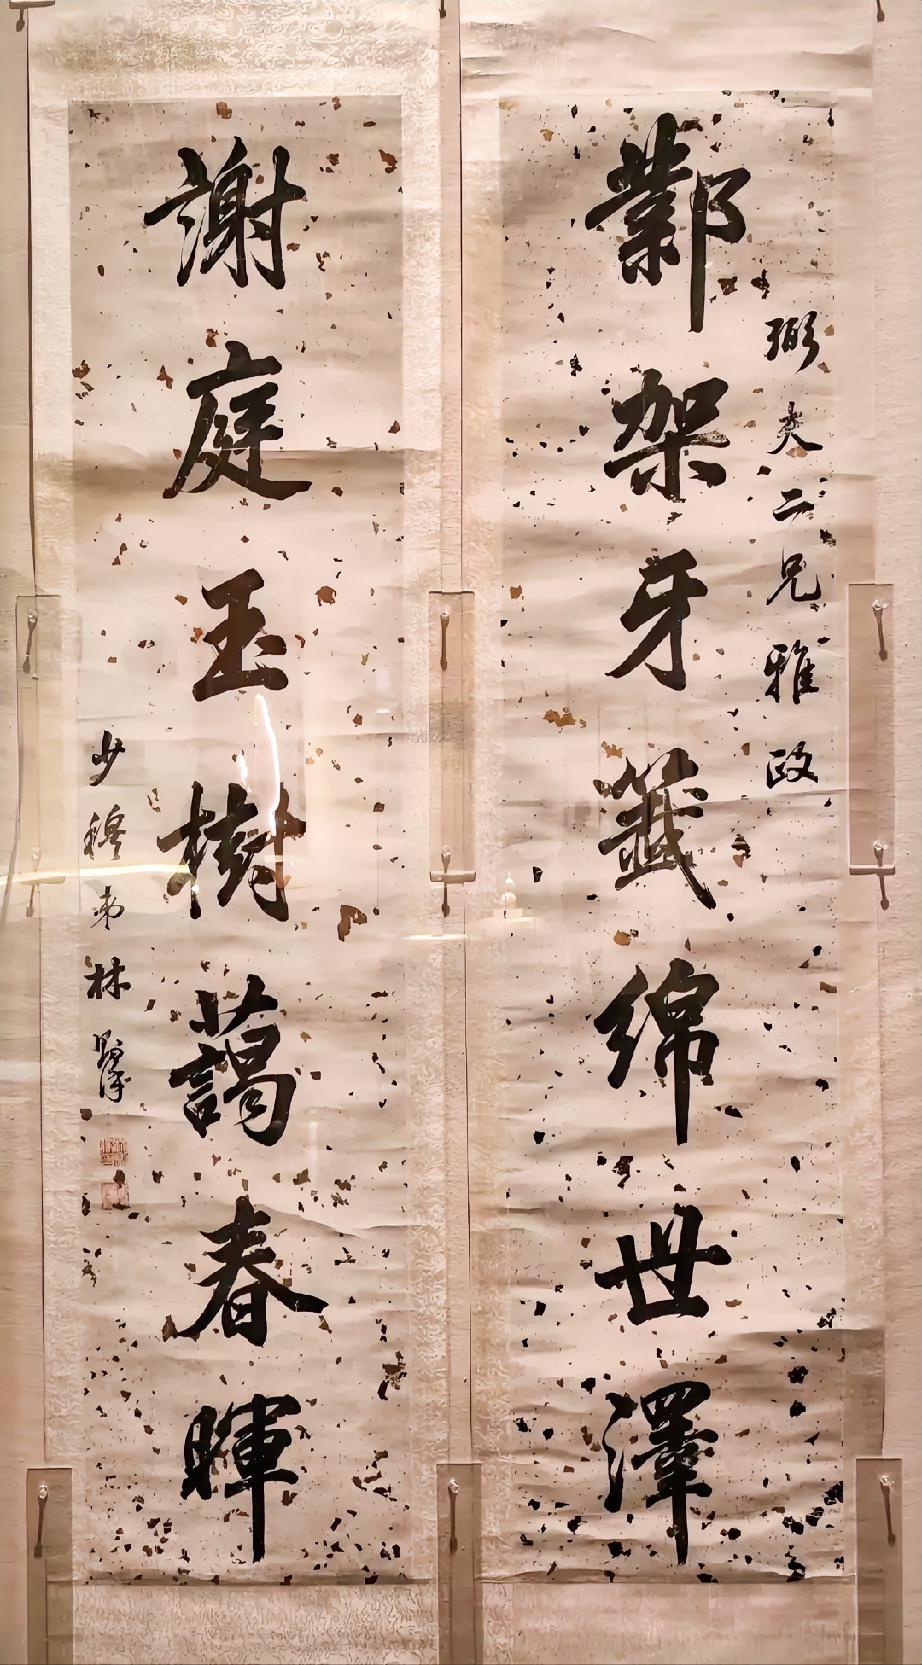 弼夫二兄雅政
鄴架牙籤綿世澤
謝庭玉樹藹春暉
少穆弟林則徐